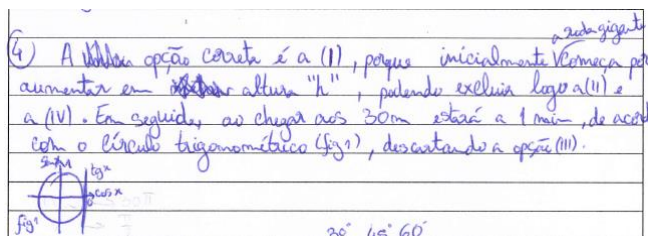 a roda gigante
4) A opção correta é a (I), porque inicialmente começa por
aumentar em altura "h", podendo excluir logo a (II) e
a (IV). Em seguida, ao chegar aos 30m estará a 1 min, de acord
com o círculo trigonométrico (fig 1), descartando a opção (III).
tgx
cosx
fig 1
30° 45° 60°